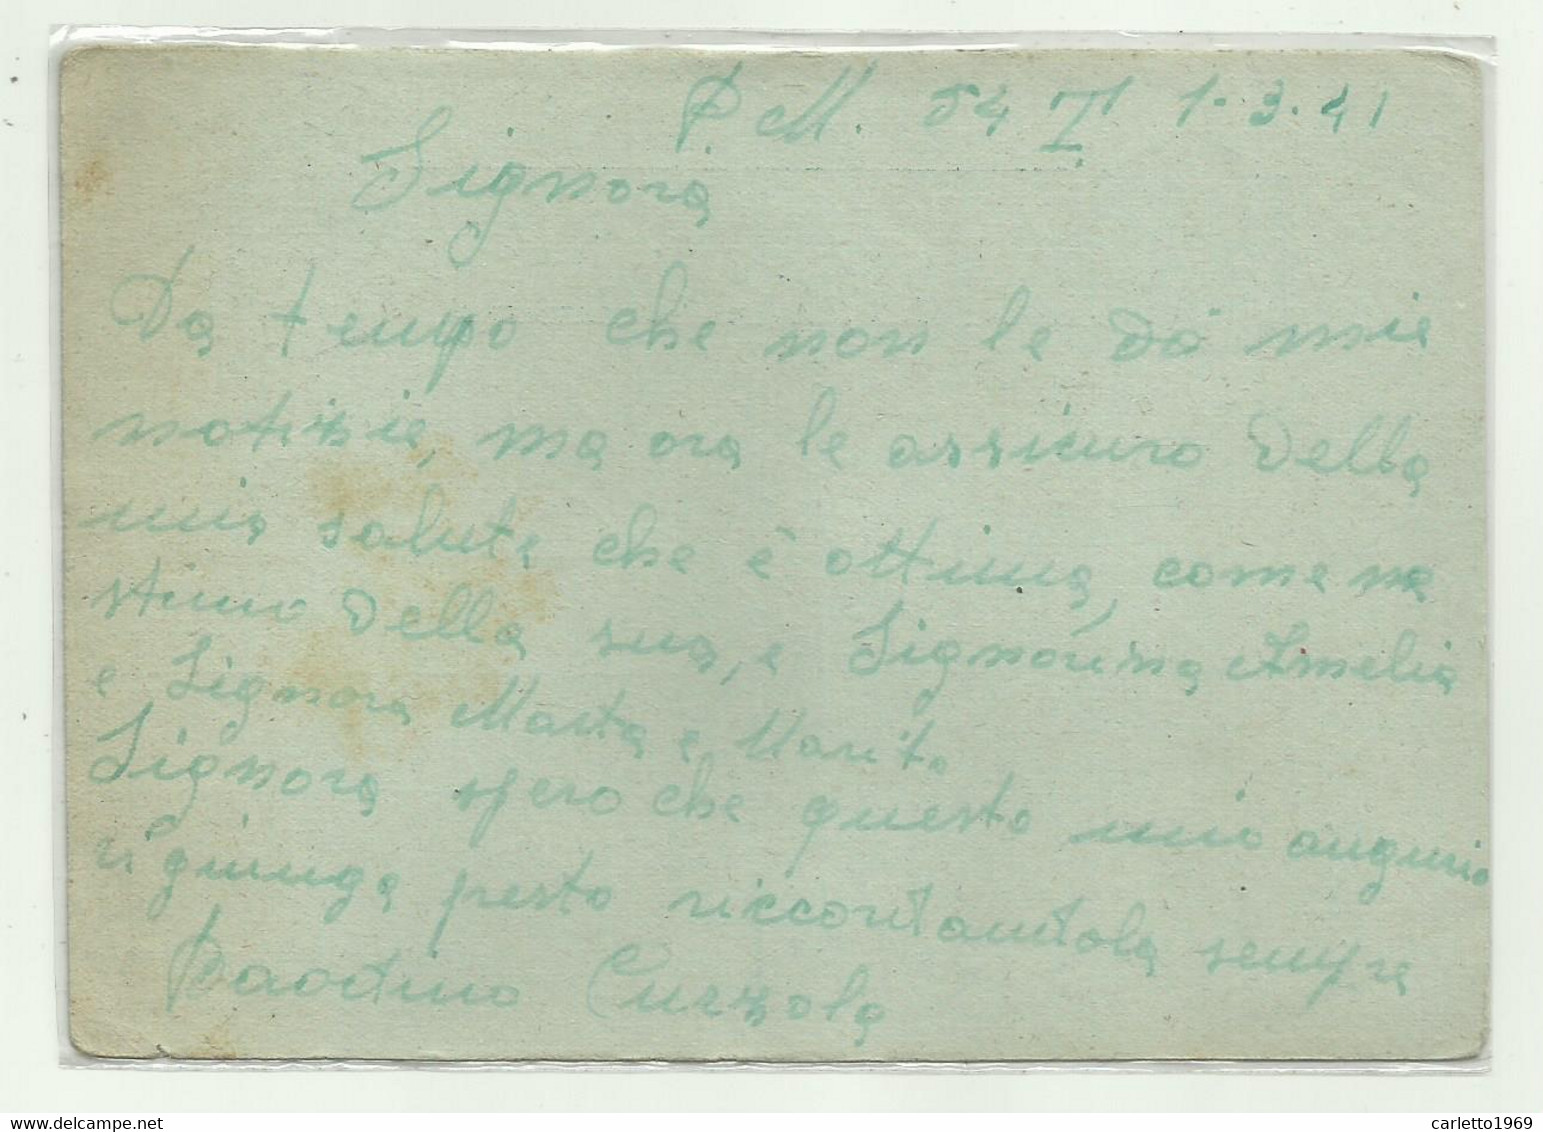 P. M. 54 I 1-3.41
Signora
Da tempo che non le dò mie
notizie, ma ora le assicuro della
mia salute che è ottima, come ne
stimo della sua, e Signorina Amelia
e Signora Marta e Marito
Signora spero che questo mio augurio
vi giunga presto riccordandola sempre
Curzola
carletto1969